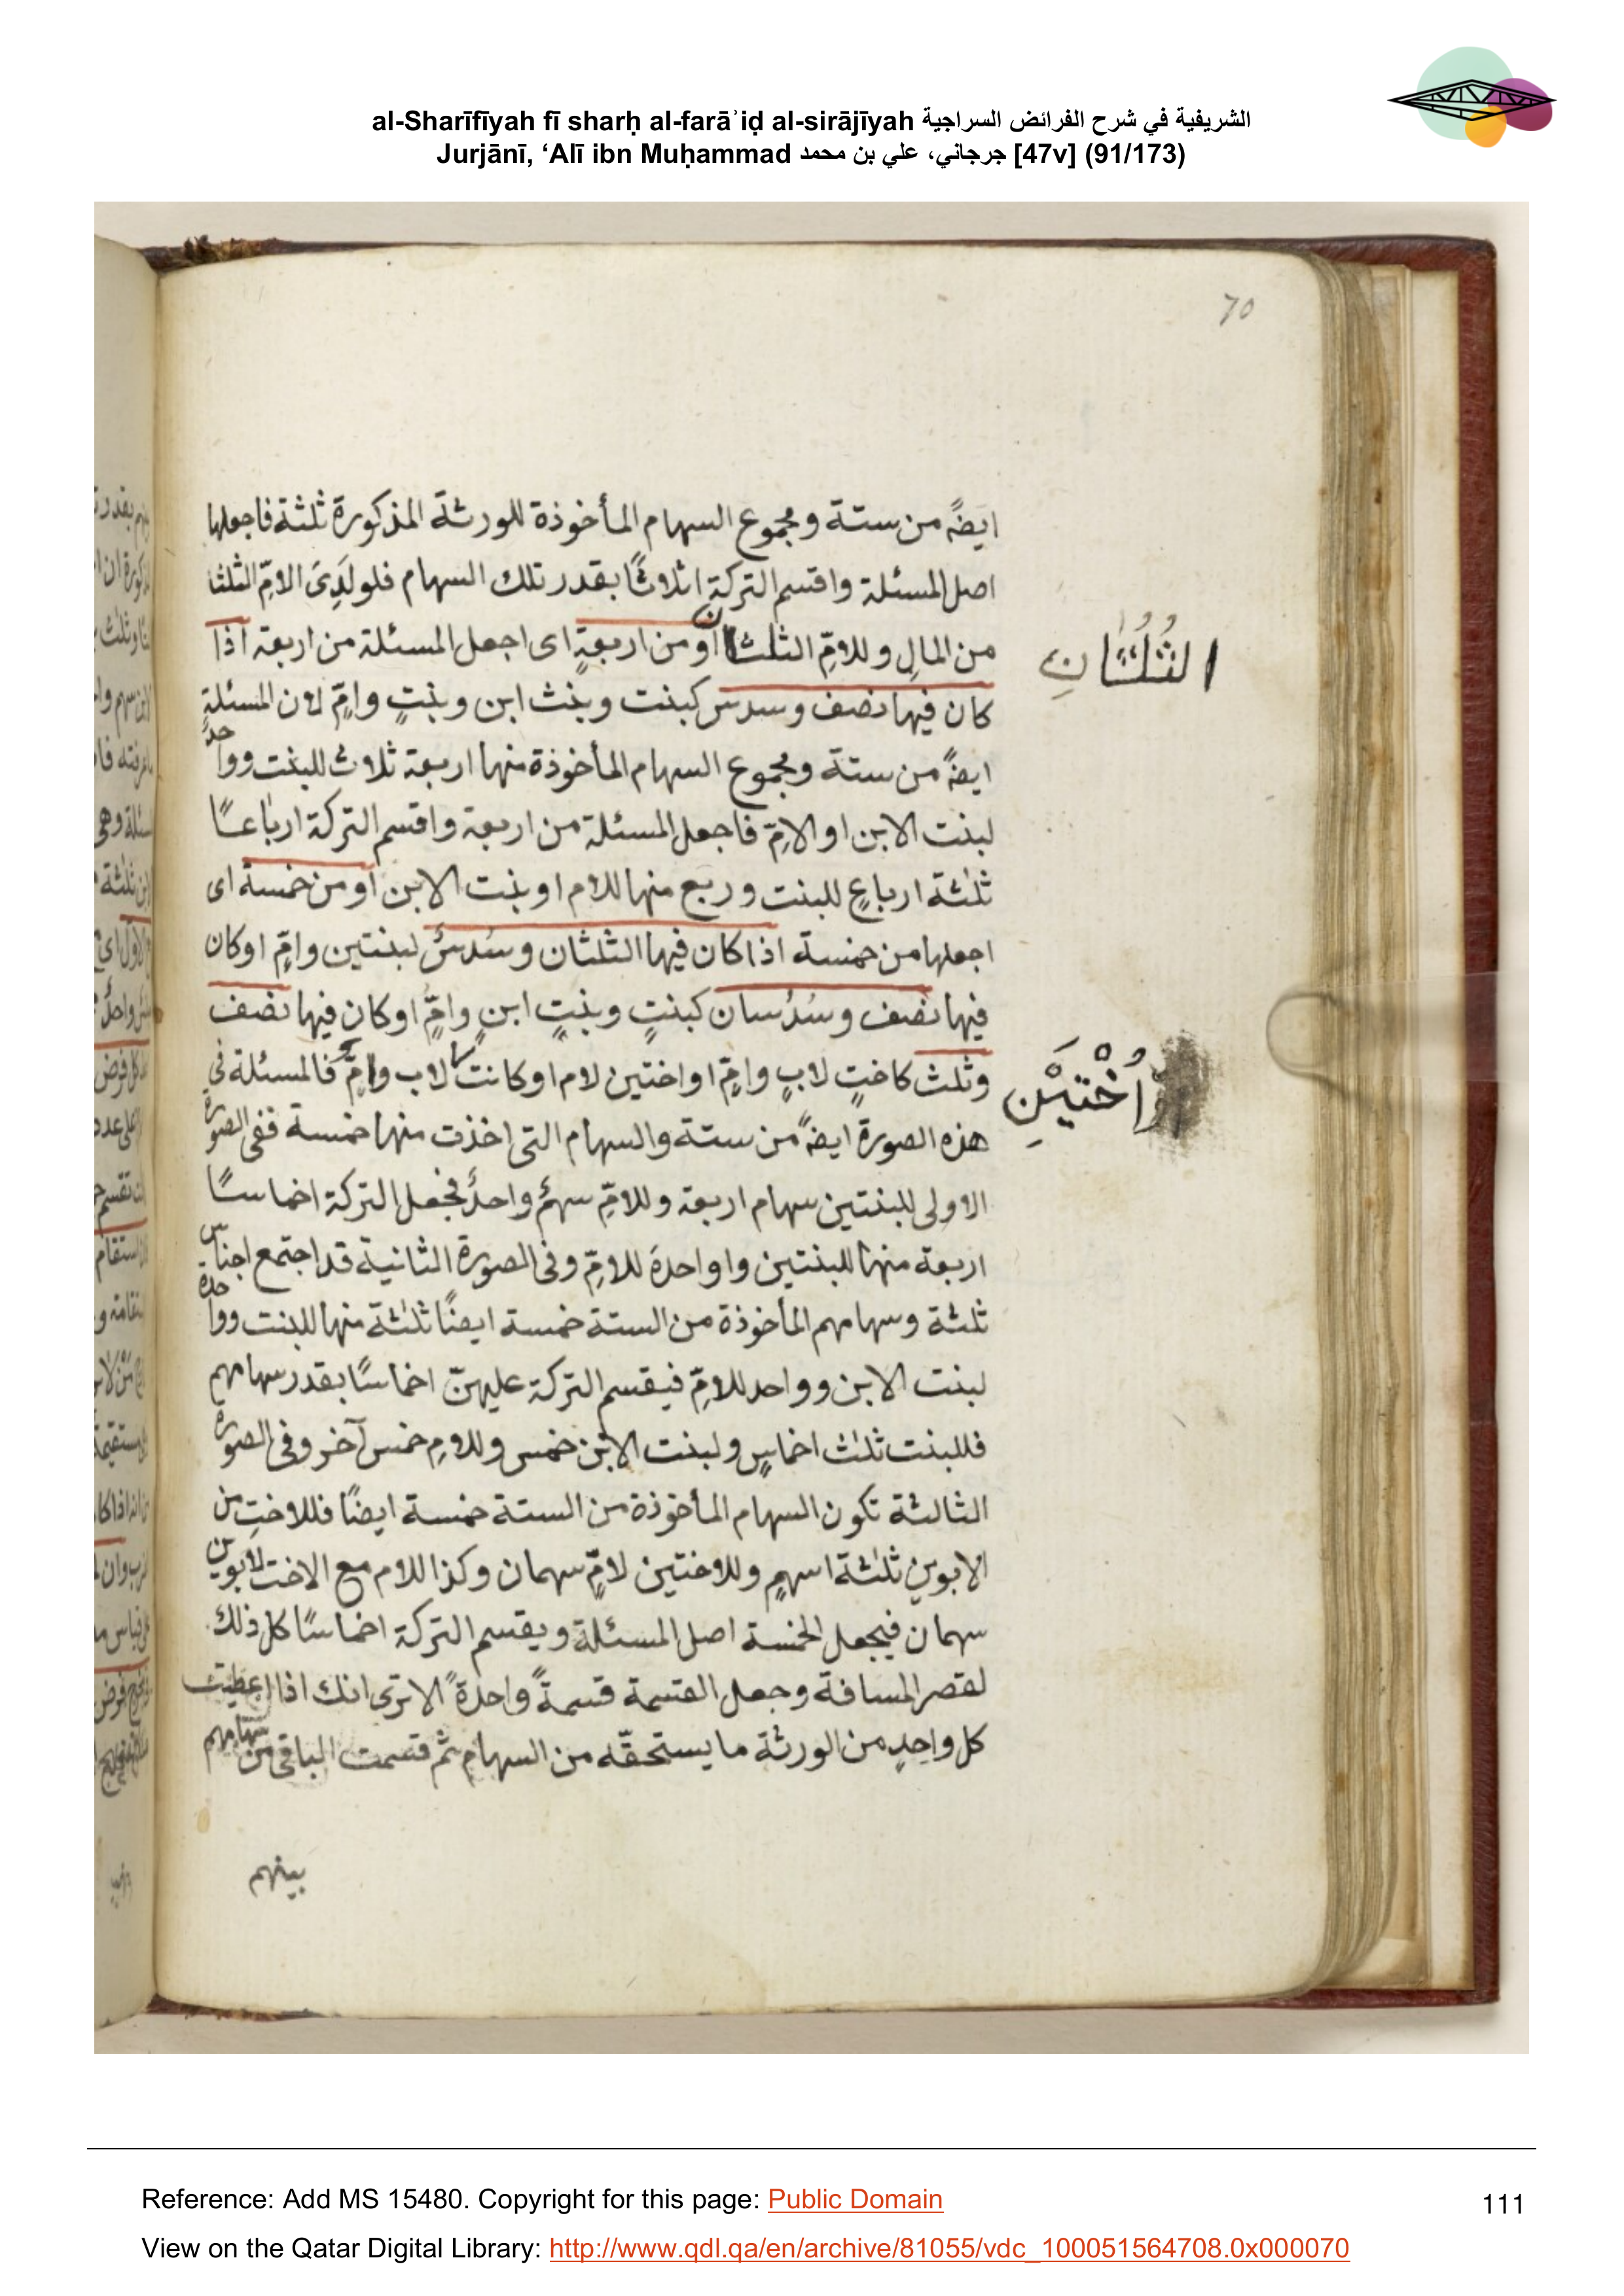 al-Sharīfīyah fī sharḥ al-farāʾiḍ al-sirājīyah الشريفية في شرح الفرائض السراجية
Jurjānī, ‘Alī ibn Muḥammad جرجاني، علي بن محمد [47v] (91/173)
70
ايضً من ستة ومجموع السهام المأخوذة للورثة المذكورة ثلثة فاجعلها
اصل المسئلة واقسم التركة اثلاثًا بقدر تلك السهام فلولَدَىَ الامّ الثلثا
من المالِ وللامِّ الثلث او من اربعةٍ اى اجعل المسئلة من اربعة اذا
الثُلُثانِ
كان فيها نصف وسدس كبنت وبنث ابن وبنتٍ وامٍّ لان المسئلةٍ
ايضً من ستة ومجموع السهام المأخوذة منها اربعة ثلاث للبنت وواحدٌ
لبنت الابن او الامّ فاجعل المسئلة من اربعة واقسم التركة ارباعًا
ثلثة ارباعٍ للبنت وربع منها للام او بنت الابن او من خمسة اى
اجعلها من خمسة اذا كان فيها الثلثان وسُدسٌ لبنتين وامٍّ او كان
فيها نصف وسُدُسان كبنتٍ وبنتٍ ابنٍ وامٍّ او كان فيها نصف
وثلث كاختٍ لابٍ وامٍّ او اختين لام او كانت لاب وامٍّ فالمسئلة فى
وَاُخْتَيْنِ
هذه الصورة ايضً من ستة والسهام التى اخذت منها خمسة ففى الصورة
الاولى للبنتين سهام اربعة وللامِّ سهمٌ واحدٌ فجعل التركة اخماسًا
اربعة منها للبنتين واواحدة للامِّ وفى الصورة الثانية قد اجتمع اجناس
ثلثة وسهامهم المأخوذة من الستة خمسة ايضًا ثلثة منها للبنت وواحدة
لبنت الابن وواحد للامِّ فيقسم التركة عليهنّ اخماسًا بقدر سهامهم
فللبنت ثلث اخماسٍ ولبنت الابن خمس وللامِ خمس آخر وفى الصورة
الثالثة تكون السهام المأخوذة من الستة خمسة ايضًا فللاختِ من
الابوين ثلثة اسهمٍ وللاختين لامٍّ سهمان وكذا للام مع الاخت لابوين
سهمان فيجعل الخمسة اصل المسئلة ويقسم التركة اخماسًا كل ذلك
لقصر المسافة وجعل القسمة قسمةً واحدةً الا ترى انك اذا اعطيت
كل واحدٍ من الورثة ما يستحقّه من السهام ثمّ قسمت الباقى من سهامهم
بينهم
Reference: Add MS 15480. Copyright for this page: Public Domain
111
View on the Qatar Digital Library: http://www.qdl.qa/en/archive/81055/vdc_100051564708.0x000070